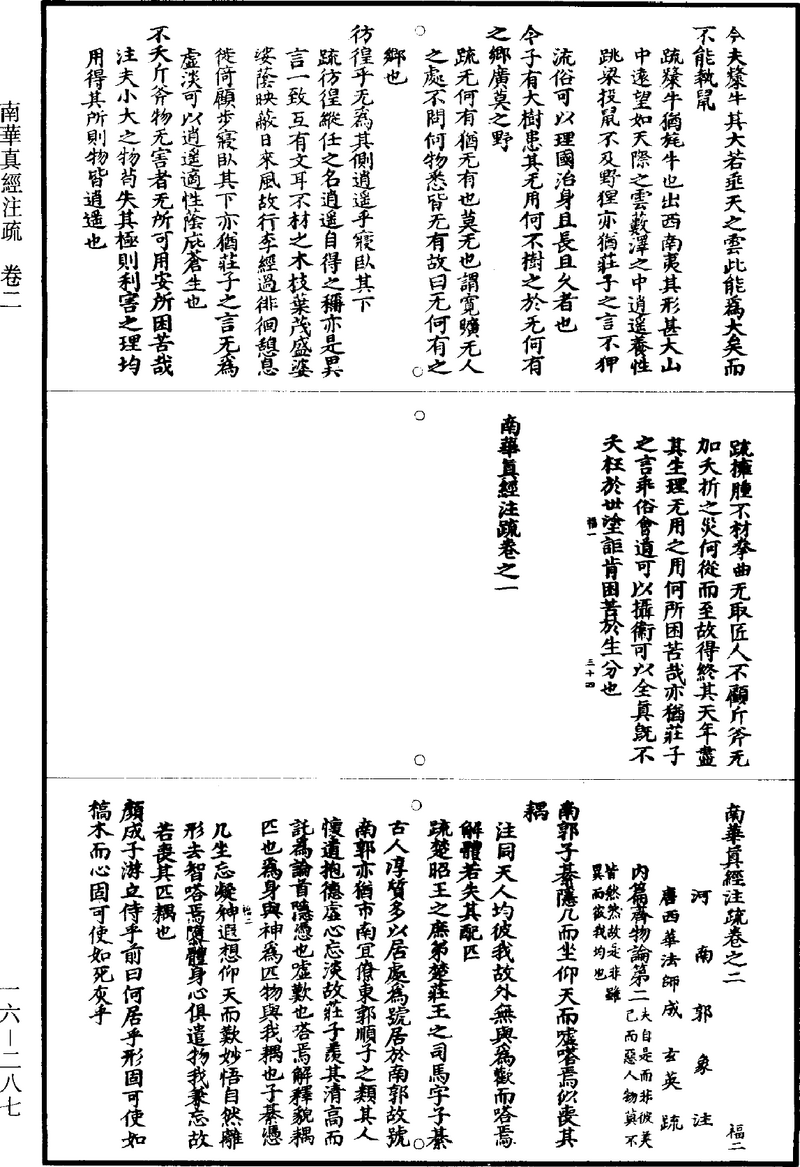 南華真經注疏　卷二
一六—二八七
今夫斄牛其大若垂天之雲此能爲大矣而
不能執鼠
疏斄牛猶旄牛也出西南夷其形甚大山
中遠望如天際之雲藪澤之中逍遥養性
跳梁投鼠不及野狸亦猶莊子之言不狎
流俗可以理國治身且長且久者也
今子有大樹患其无用何不樹之於无何有
之鄉廣莫之野
疏无何有猶无有也莫无也謂寛曠无人
之處不問何物悉皆无有故曰无何有之
鄉也
彷徨乎无爲其側逍遥乎寢卧其下
疏彷徨縱任之名逍遥自得之稱亦是異
言一致互有文耳不材之木枝葉茂盛婆
娑蔭映蔽日來風故行李經過徘徊憩息
徙倚顧步寢卧其下亦猶莊子之言无爲
虛淡可以逍遥適性蔭庇蒼生也
不夭斤斧物无害者无所可用安所困苦哉
注夫小大之物苟失其極則利害之理均
用得其所則物皆逍遥也
疏擁腫不材拳曲无取匠人不顧斤斧无
加夭折之災何從而至故得終其天年盡
其生理无用之用何所困苦哉亦猶莊子
之言乖俗會道可以攝衛可以全真既不
夭枉於世塗詎肯困苦於生分也
福一
三十四
南華真經注疏卷之一
南華真經注疏卷之二
福二
河南郭象注
唐西華法師成玄英疏
内篇齊物論第二
夫自是而非彼美
己而惡人物莫不
皆然然故是非雖
異而彼我均也
南郭子綦隱几而坐仰天而噓嗒焉似喪其
耦
注同天人均彼我故外無與爲歡而嗒焉
解體若失其配匹
疏楚昭王之庶弟楚莊王之司馬字子綦
古人淳質多以居處爲號居於南郭故號
南郭亦猶市南宜僚東郭順子之類其人
懷道抱德虛心忘淡故莊子羨其清高而
託爲論首隱憑也噓歎也嗒焉解釋貌耦
匹也爲身與神爲匹物與我耦也子綦憑
几坐忘凝神遐想仰天而歎妙悟自然離
福二
一
形去智嗒焉隳體身心俱遣物我兼忘故
若喪其匹耦也
顔成子游立侍乎前曰何居乎形固可使如
槁木而心固可使如死灰乎